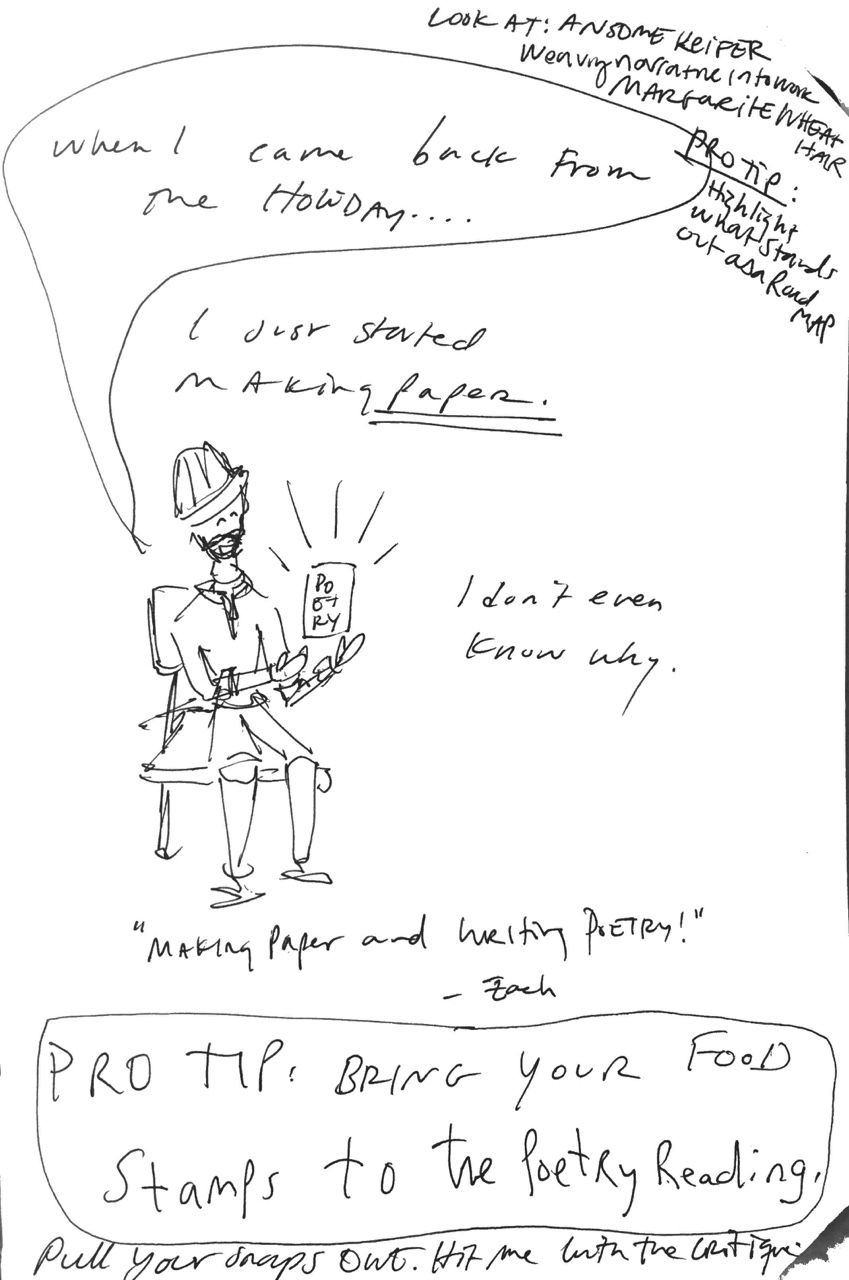 LOOK AT: ANSOME KEIPER
Weaving narrative into work
MARGARITE WHEAT
HAIR
PRO TIP:
Highlight
what stands
out as a Road
MAP
When I came back From
the HOLIDAY....
I Just started
MAKing paper.
PO
ET
RY
I don't even
know why.
"MAKING Paper and Writing POETRY!"
- Zach
PRO TIP: BRING YOUR FOOD
Stamps to the Poetry Reading.
Pull your snaps out. Hit me with the critique.